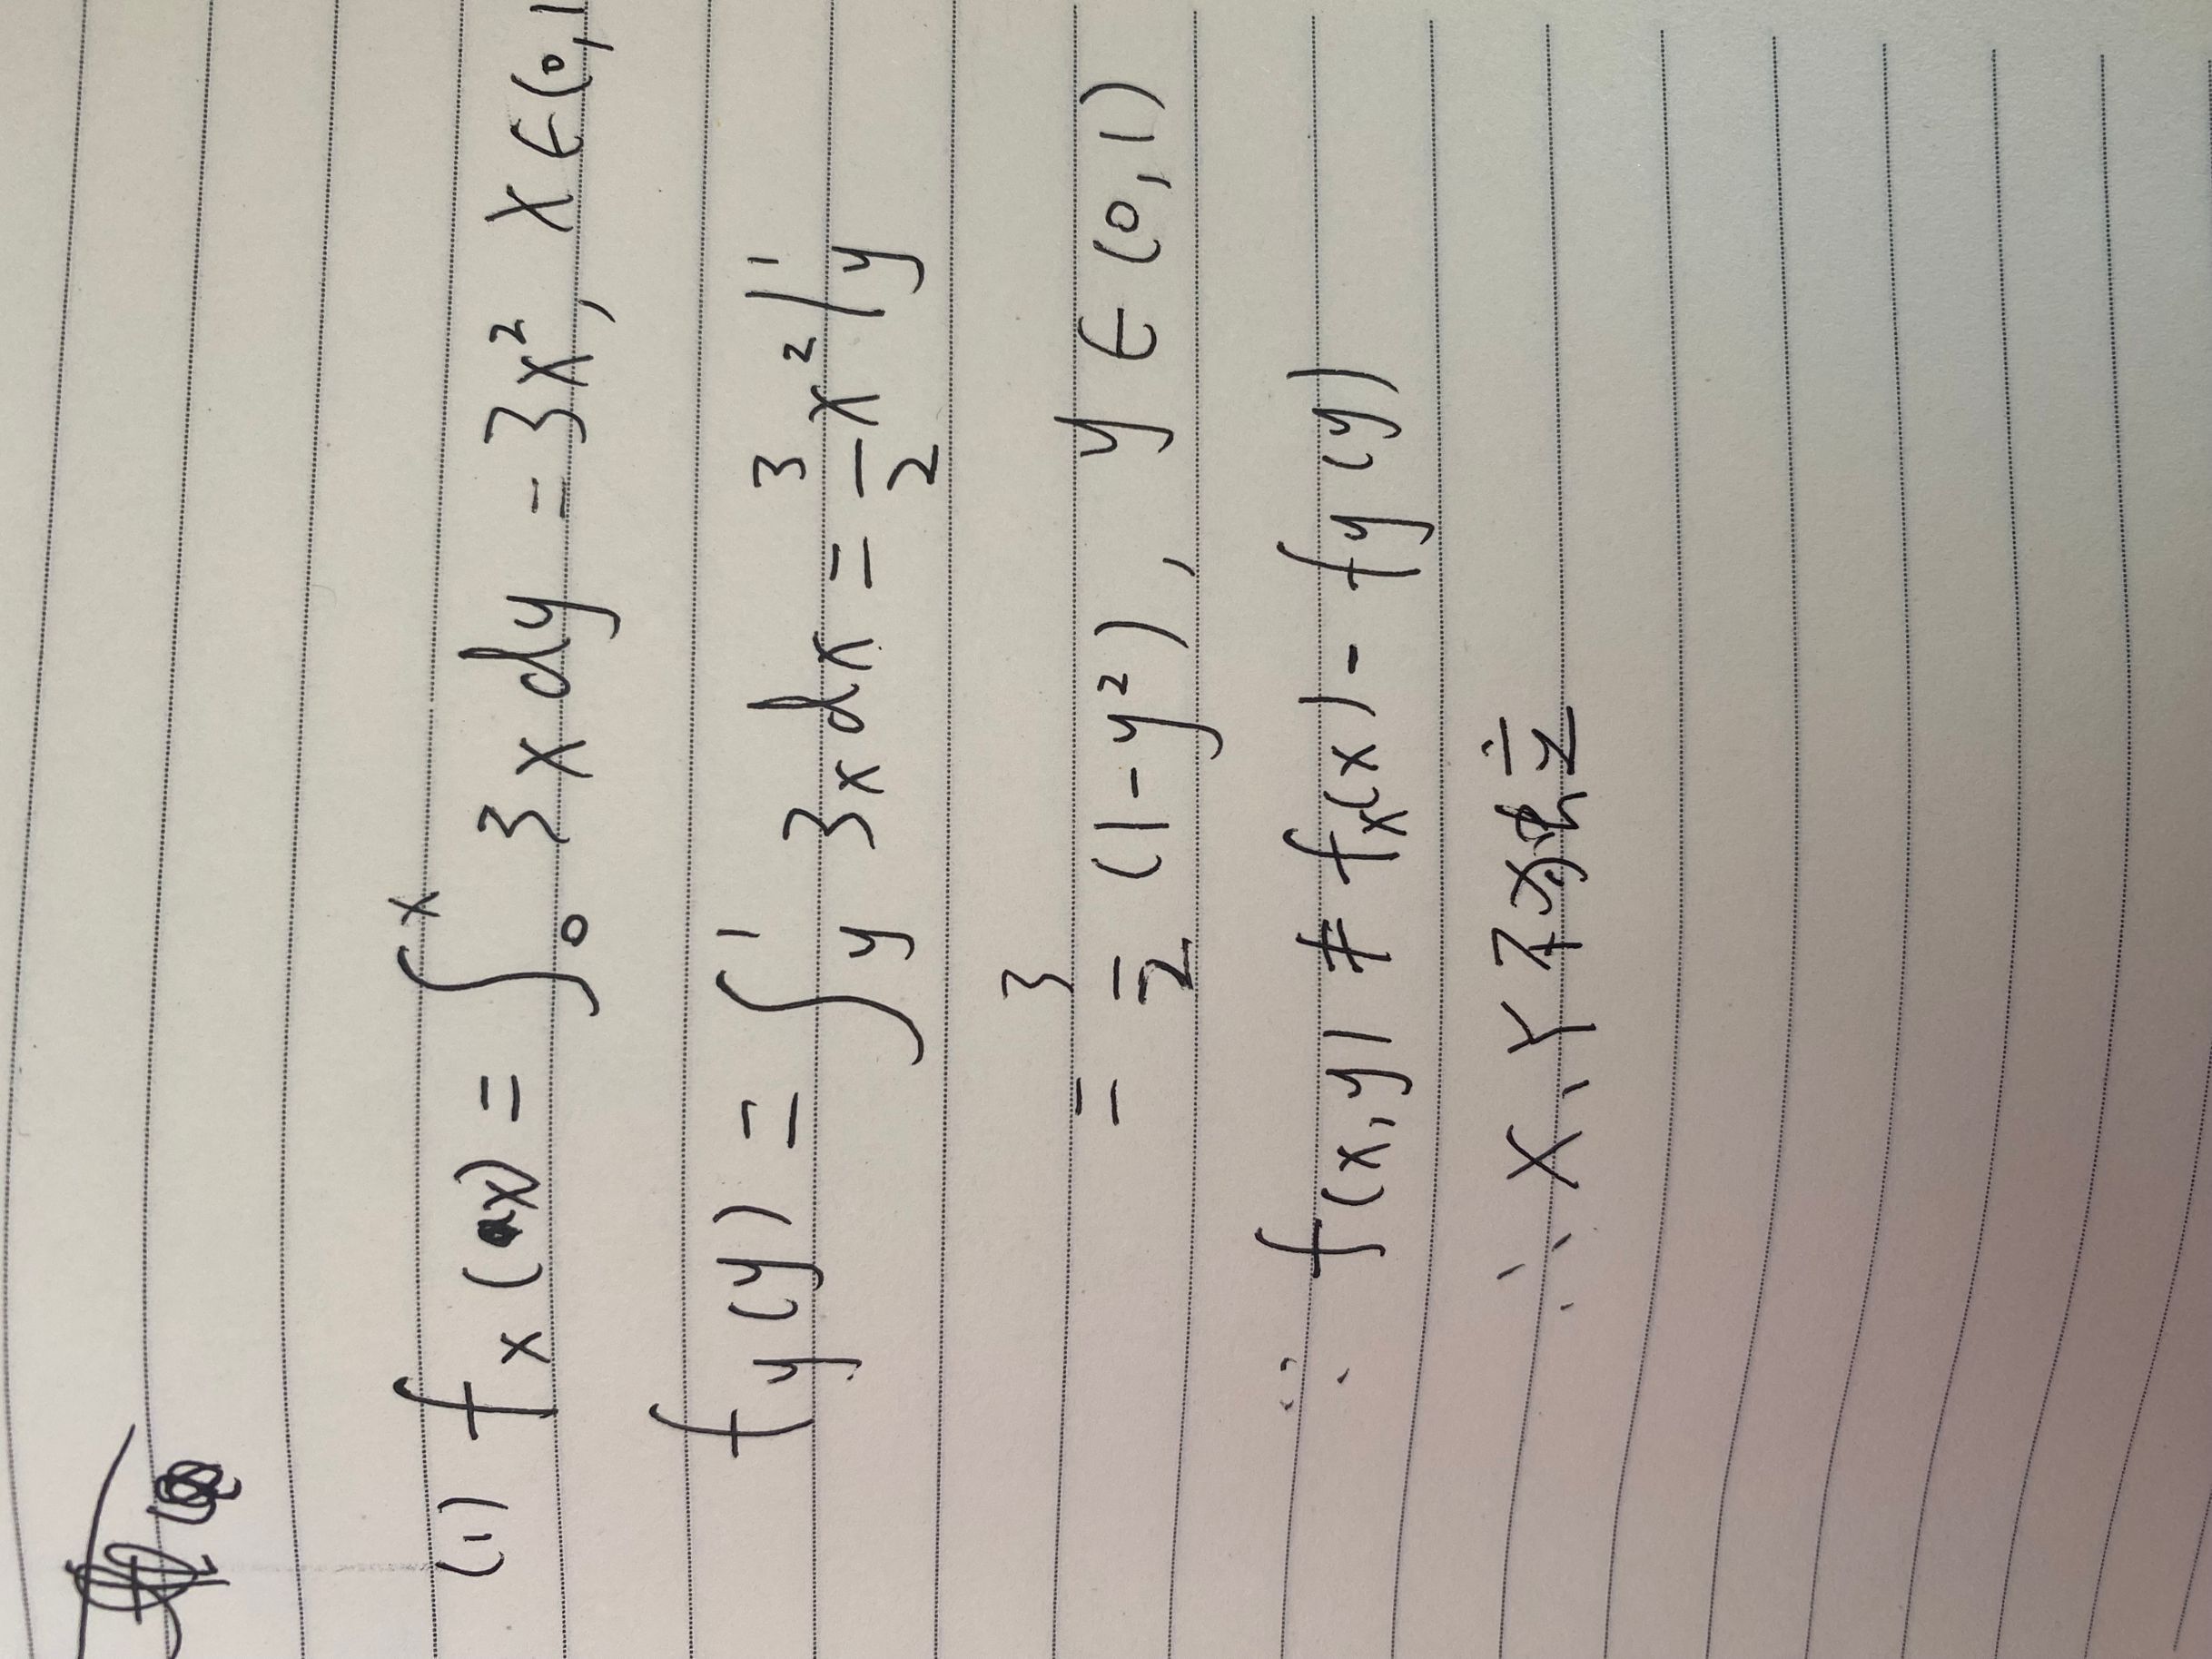 (1) fx(x) = ∫₀ˣ 3x dy = 3x², x ∈ (0,1
fy(y) = ∫y¹ 3x dx = 3/2 x² |y¹
= 3/2 (1-y²), y ∈ (0,1)
∵ f(x,y) ≠ fx(x) - fy(y)
∴ X、Y不独立